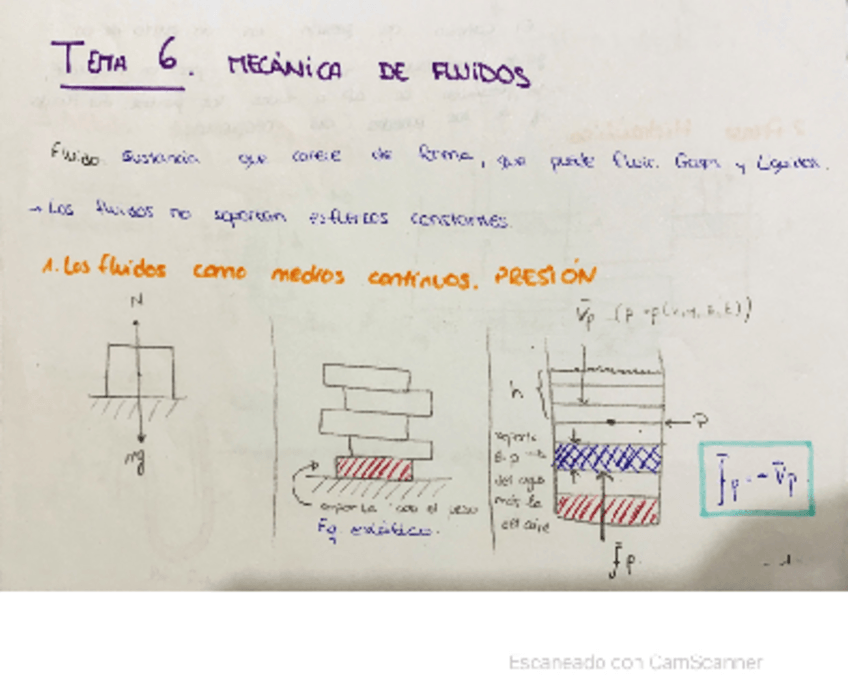 TEMA 6. MECÁNICA DE FLUIDOS
Fluido. Sustancia que carece de forma, que puede fluir. Gases y Líquidos.
→ Los fluidos no soportan esfuerzos constantes.
1. Los fluidos como medios continuos. PRESIÓN
N
mg
soporta todo el peso
Eq. estático.
h
P
soporta
la p
del agua
más la
del aire
Escaneado con CamScanner